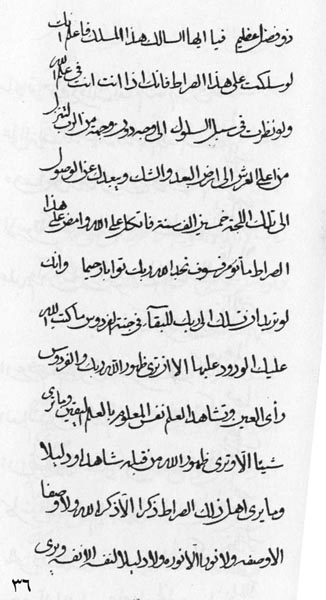 ذو فضل عظيم فيا ايها السالك هذا المسلك فاعلم انك
لو سلكت على هذا الصراط فانك اذا انت انت في علم الله
ولو نظرت في سبيل السلوك الى وجهه دون وجهه من الرب لتنزل
من اعلى العرش الى ارض البعد والشك ويبعدك عن الوصول
الى تلك اللجة خمسين الف سنة فاتكل على الله وامض على هذا
الصراط ما تؤمر فسوف تجد الله ربك توابا رحيما وانك
لو تريد ان تسلك الى ربك للبقآء في جنة الفردوس ما كتب الله
عليك الورود عليها الا ان ترى ظهور الله ربك والفردوس
رأي العين وتشاهد العلم نفس المعلوم بالعلم اليقين وما ترى
شيئا الا وترى ظهور الله من قبله شاهدا ودليلا
وما يرى اهل ذلك الصراط ذكرا الا ذكر الله ولا وصفا
الا وصفه ولا نورا الا نوره ولا دليلا الا نفسه ويرى
٣٦